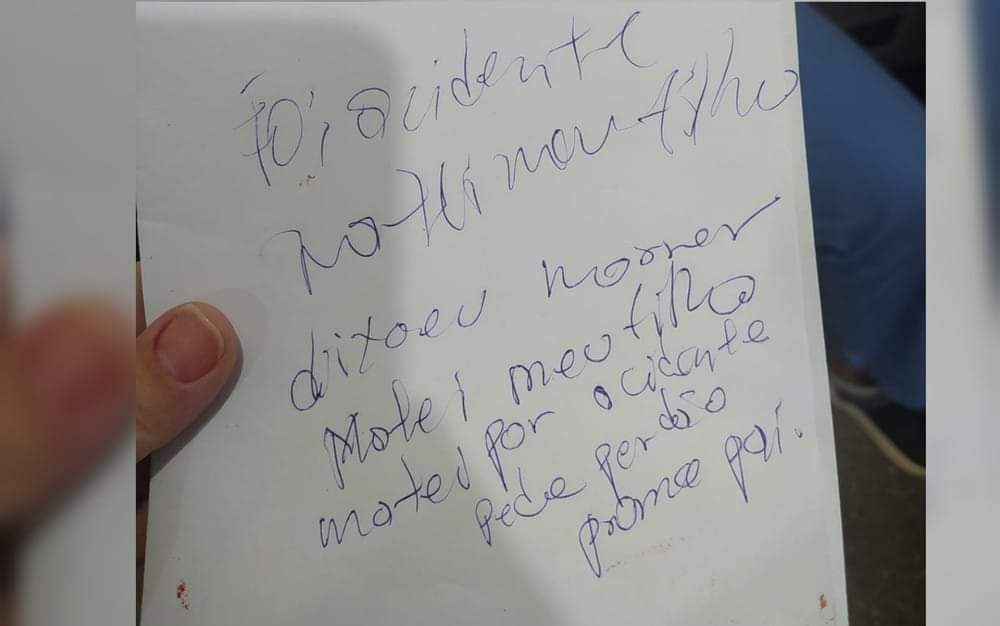 Foi acidente
matei meu filho
dixaeu morrer
Matei meu filho
matei por acidente
pede perdão
prome pai.